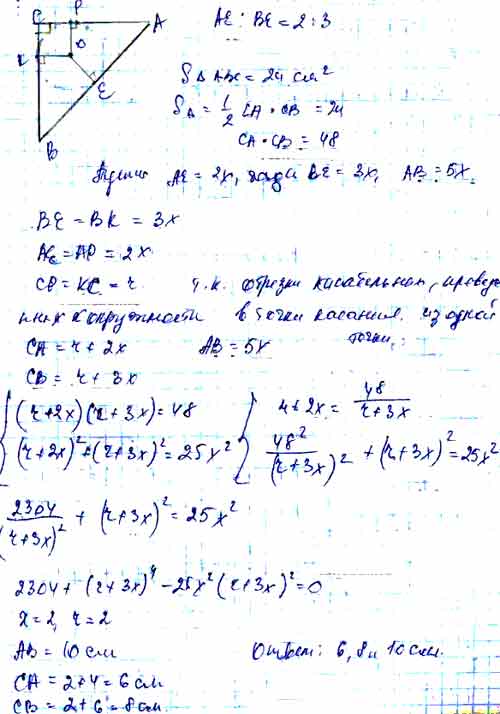 C P A
K O
E
B
AE : BE = 2 : 3
S△ABC = 24 см²
S△ = 1/2 CA · CB = 24
CA · CB = 48
Пусть AE = 2x, тогда BE = 3x, AB = 5x.
BE = BK = 3x
AE = AP = 2x
CP = KC = r т.к. отрезки касательной, проведе
нных к окружности в точки касания из одной
точки.
CA = r + 2x AB = 5x
CB = r + 3x
(r+2x)(r+3x) = 48
(r+2x)² + (r+3x)² = 25x²
r+2x = 48/(r+3x)
48²/(r+3x)² + (r+3x)² = 25x²
2304/(r+3x)² + (r+3x)² = 25x²
2304 + (r+3x)⁴ - 25x²(r+3x)² = 0
x = 2, r = 2
AB = 10 см
Ответ: 6, 8 и 10 см.
CA = 2+4 = 6 см
CB = 2+6 = 8 см